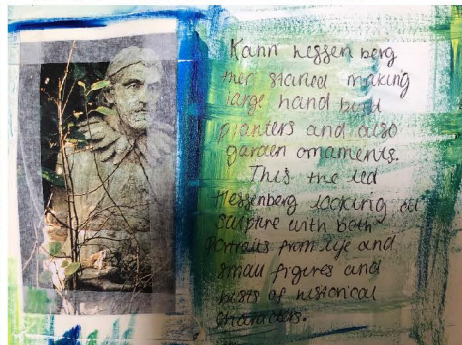 Kann hessen berg
then started making
large hand built
planters and also
garden ornaments.
This the led
Hessenberg looking at
sculptire with both
Portraits from life and
small figures and
busts of historical
characters.